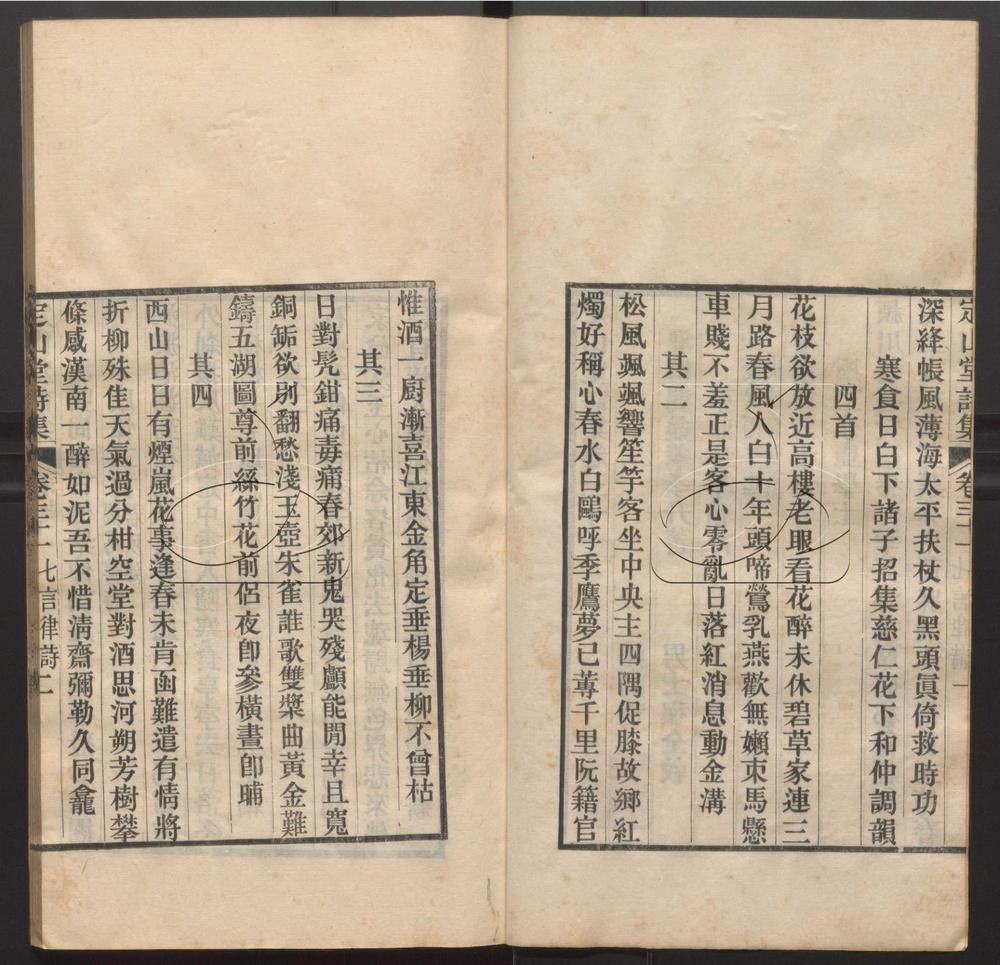 定山堂詩集 卷三十一 七言律詩 一
深絳帳風薄海太平扶杖久黑頭眞倚救時功
寒食日白下諸子招集慈仁花下和仲調韻
四首
花枝欲放近高樓老眼看花醉未休碧草家連三
月路春風人白十年頭啼鶯乳燕歡無嬾束馬懸
車賤不羞正是客心零亂日落紅消息動金溝
其二
松風颯颯響笙竽客坐中央主四隅促膝故鄉紅
燭好稱心春水白鷗呼季鷹夢已蓴千里阮籍官
惟酒一廚漸喜江東金角定垂楊垂柳不曾枯
其三
日對髡鉗痛毒痡春郊新鬼哭殘顱能閒幸且寬
銅鉐欲別翻愁淺玉壺朱雀誰歌雙槳曲黃金難
鑄五湖圖尊前絲竹花前侶夜卽參橫晝卽晡
其四
西山日日有煙嵐花事逢春未肯函難遣有情將
折柳殊佳天氣過分柑空堂對酒思河朔芳樹攀
條感漢南一醉如泥吾不惜淸齋彌勒久同龕
定山堂詩集 卷三十一 七言律詩二